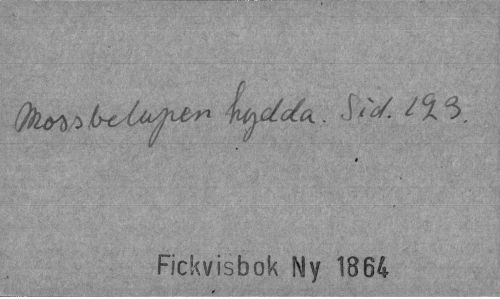 Mossbelupen hydda. Sid. 193.
Fickvisbok Ny 1864